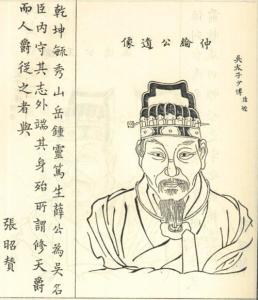 吳太子少傅諱綜
仲綸公遺像
乾坤毓秀山岳鍾靈篤生薛公為吳名
臣內守其志外端其身殆所謂修天爵
而人爵從之者與
張昭贊